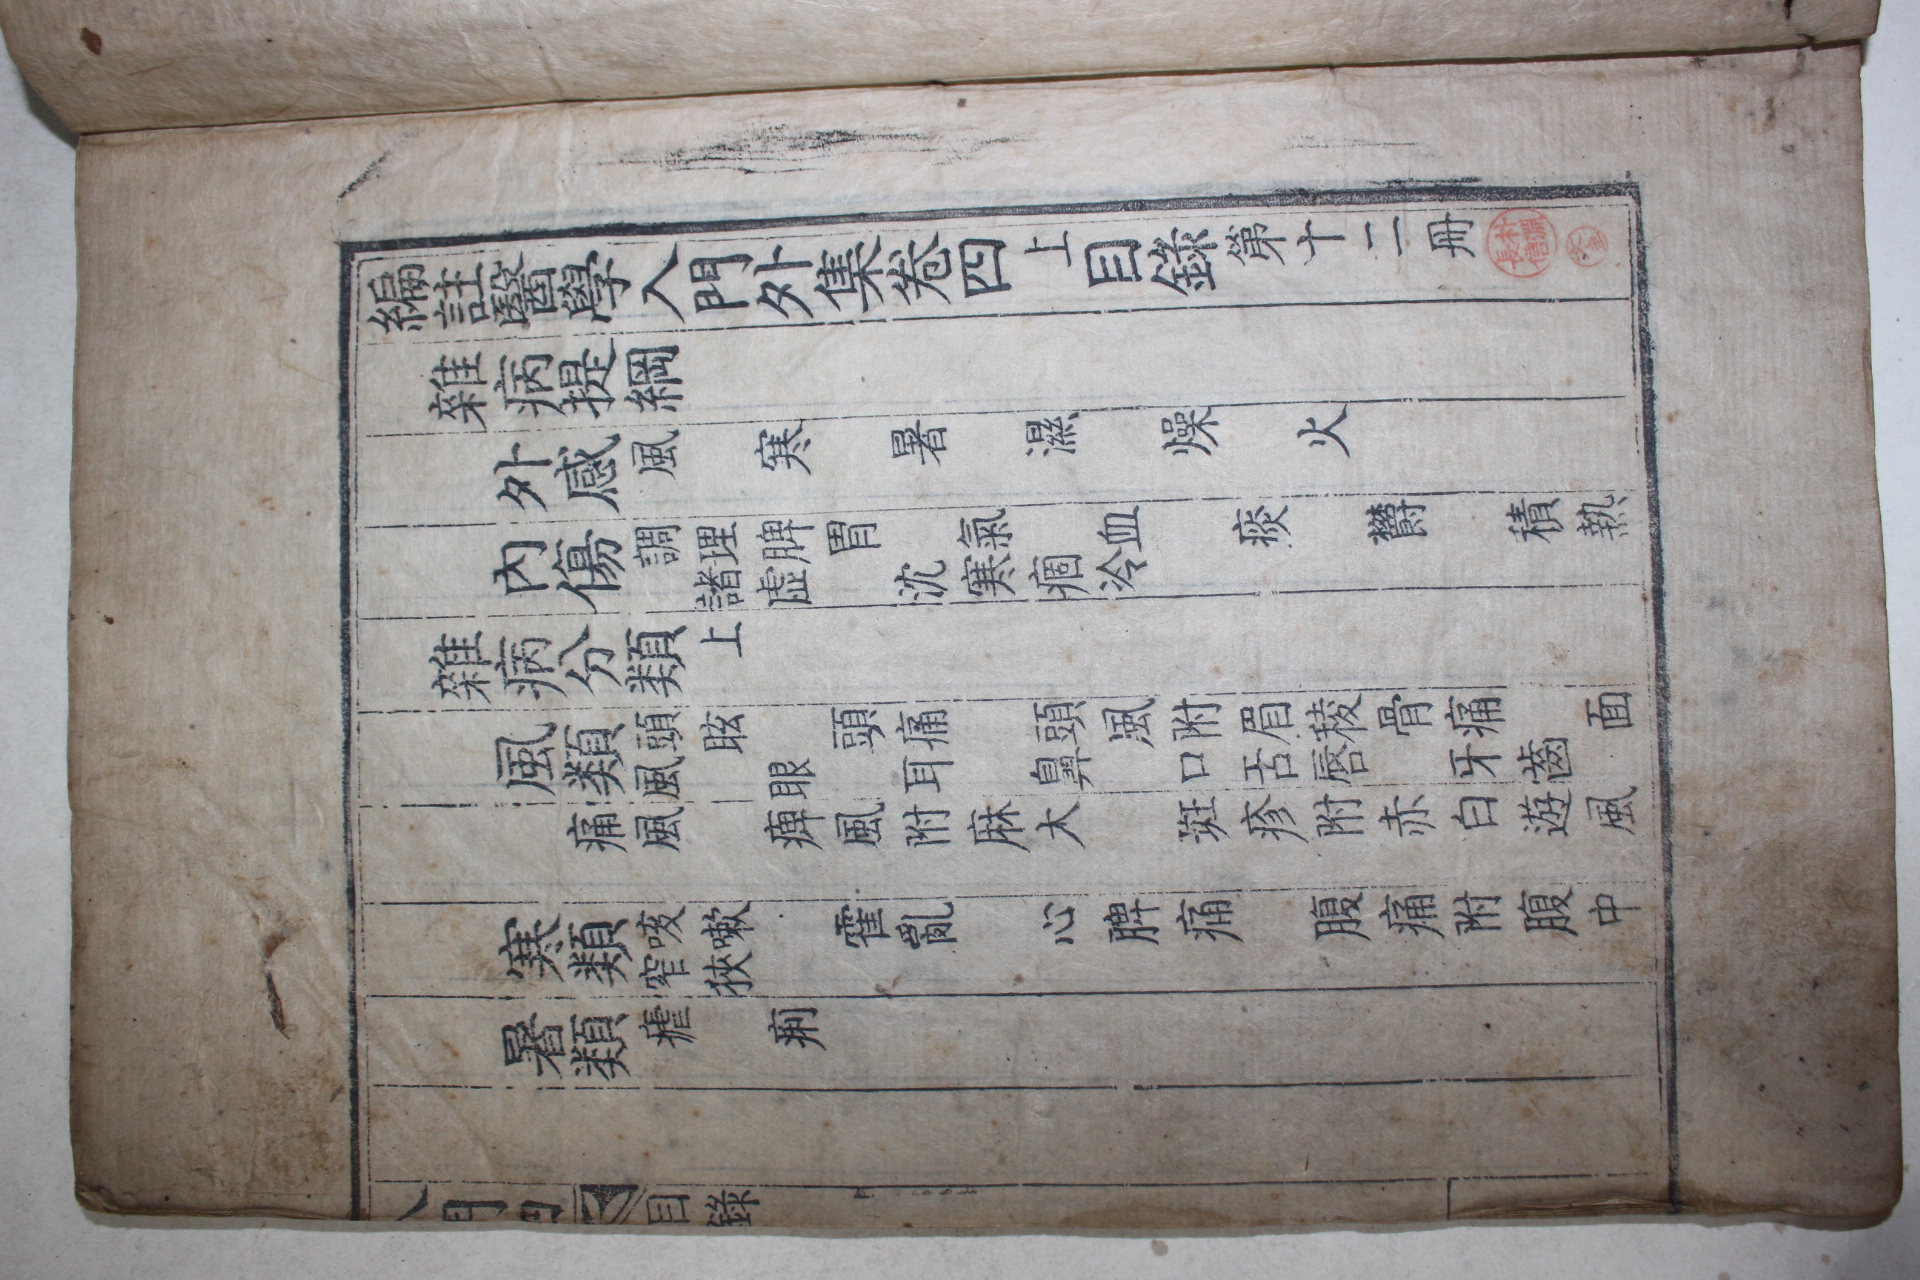 編註醫學入門外集卷四上目錄第十二冊
雜病提綱
外感 風 寒 暑 濕 燥 火
內傷 調理脾胃 氣 血 痰 鬱 積熱
諸虛 沈寒痼冷
雜病分類上
風類 頭眩 頭痛 頭風附眉稜骨痛 面
風 眼 耳 鼻 口舌唇 牙齒
痛風 痺風附麻木 斑疹附赤白遊風
寒類 咳嗽 霍亂 心脾痛 腹痛附腹中
窄狹
暑類 瘧 痢
入門四 目錄